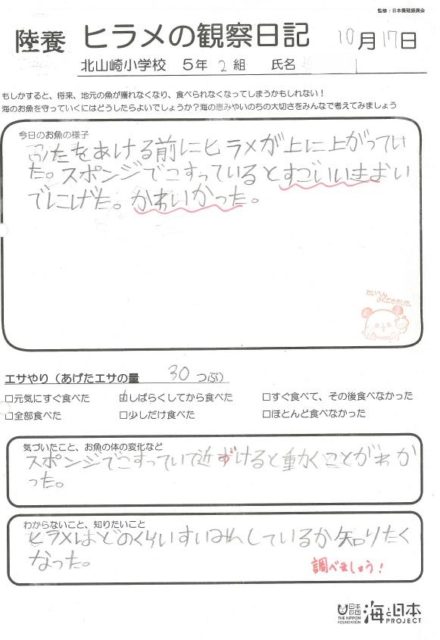 監修：日本養殖振興会
陸養 ヒラメの観察日記 10月17日
北山崎小学校 5年 2 組 氏名
もしかすると、将来、地元の魚が獲れなくなり、食べられなくなってしまうかもしれない！
海のお魚を守っていくにはどうしたらよいでしょうか？海の恵みやいのちの大切さをみんなで考えてみましょう
今日のお魚の様子
ふたをあける前にヒラメが上に上がってい
た。スポンジでこすっているとすごいいきおい
でにげた。かわいかった。
エサやり（あげたエサの量 30 つぶ）
□元気にすぐ食べた □しばらくしてから食べた □すぐ食べて、その後食べなかった
□全部食べた □少しだけ食べた □ほとんど食べなかった
気づいたこと、お魚の体の変化など
スポンジでこすっていて近ずけると動くことがわか
った。
わからないこと、知りたいこと
ヒラメはどのくらいすいみんしているか知りたく
なった。
調べましょう！
日本財団
THE NIPPON
FOUNDATION
海と日本
PROJECT